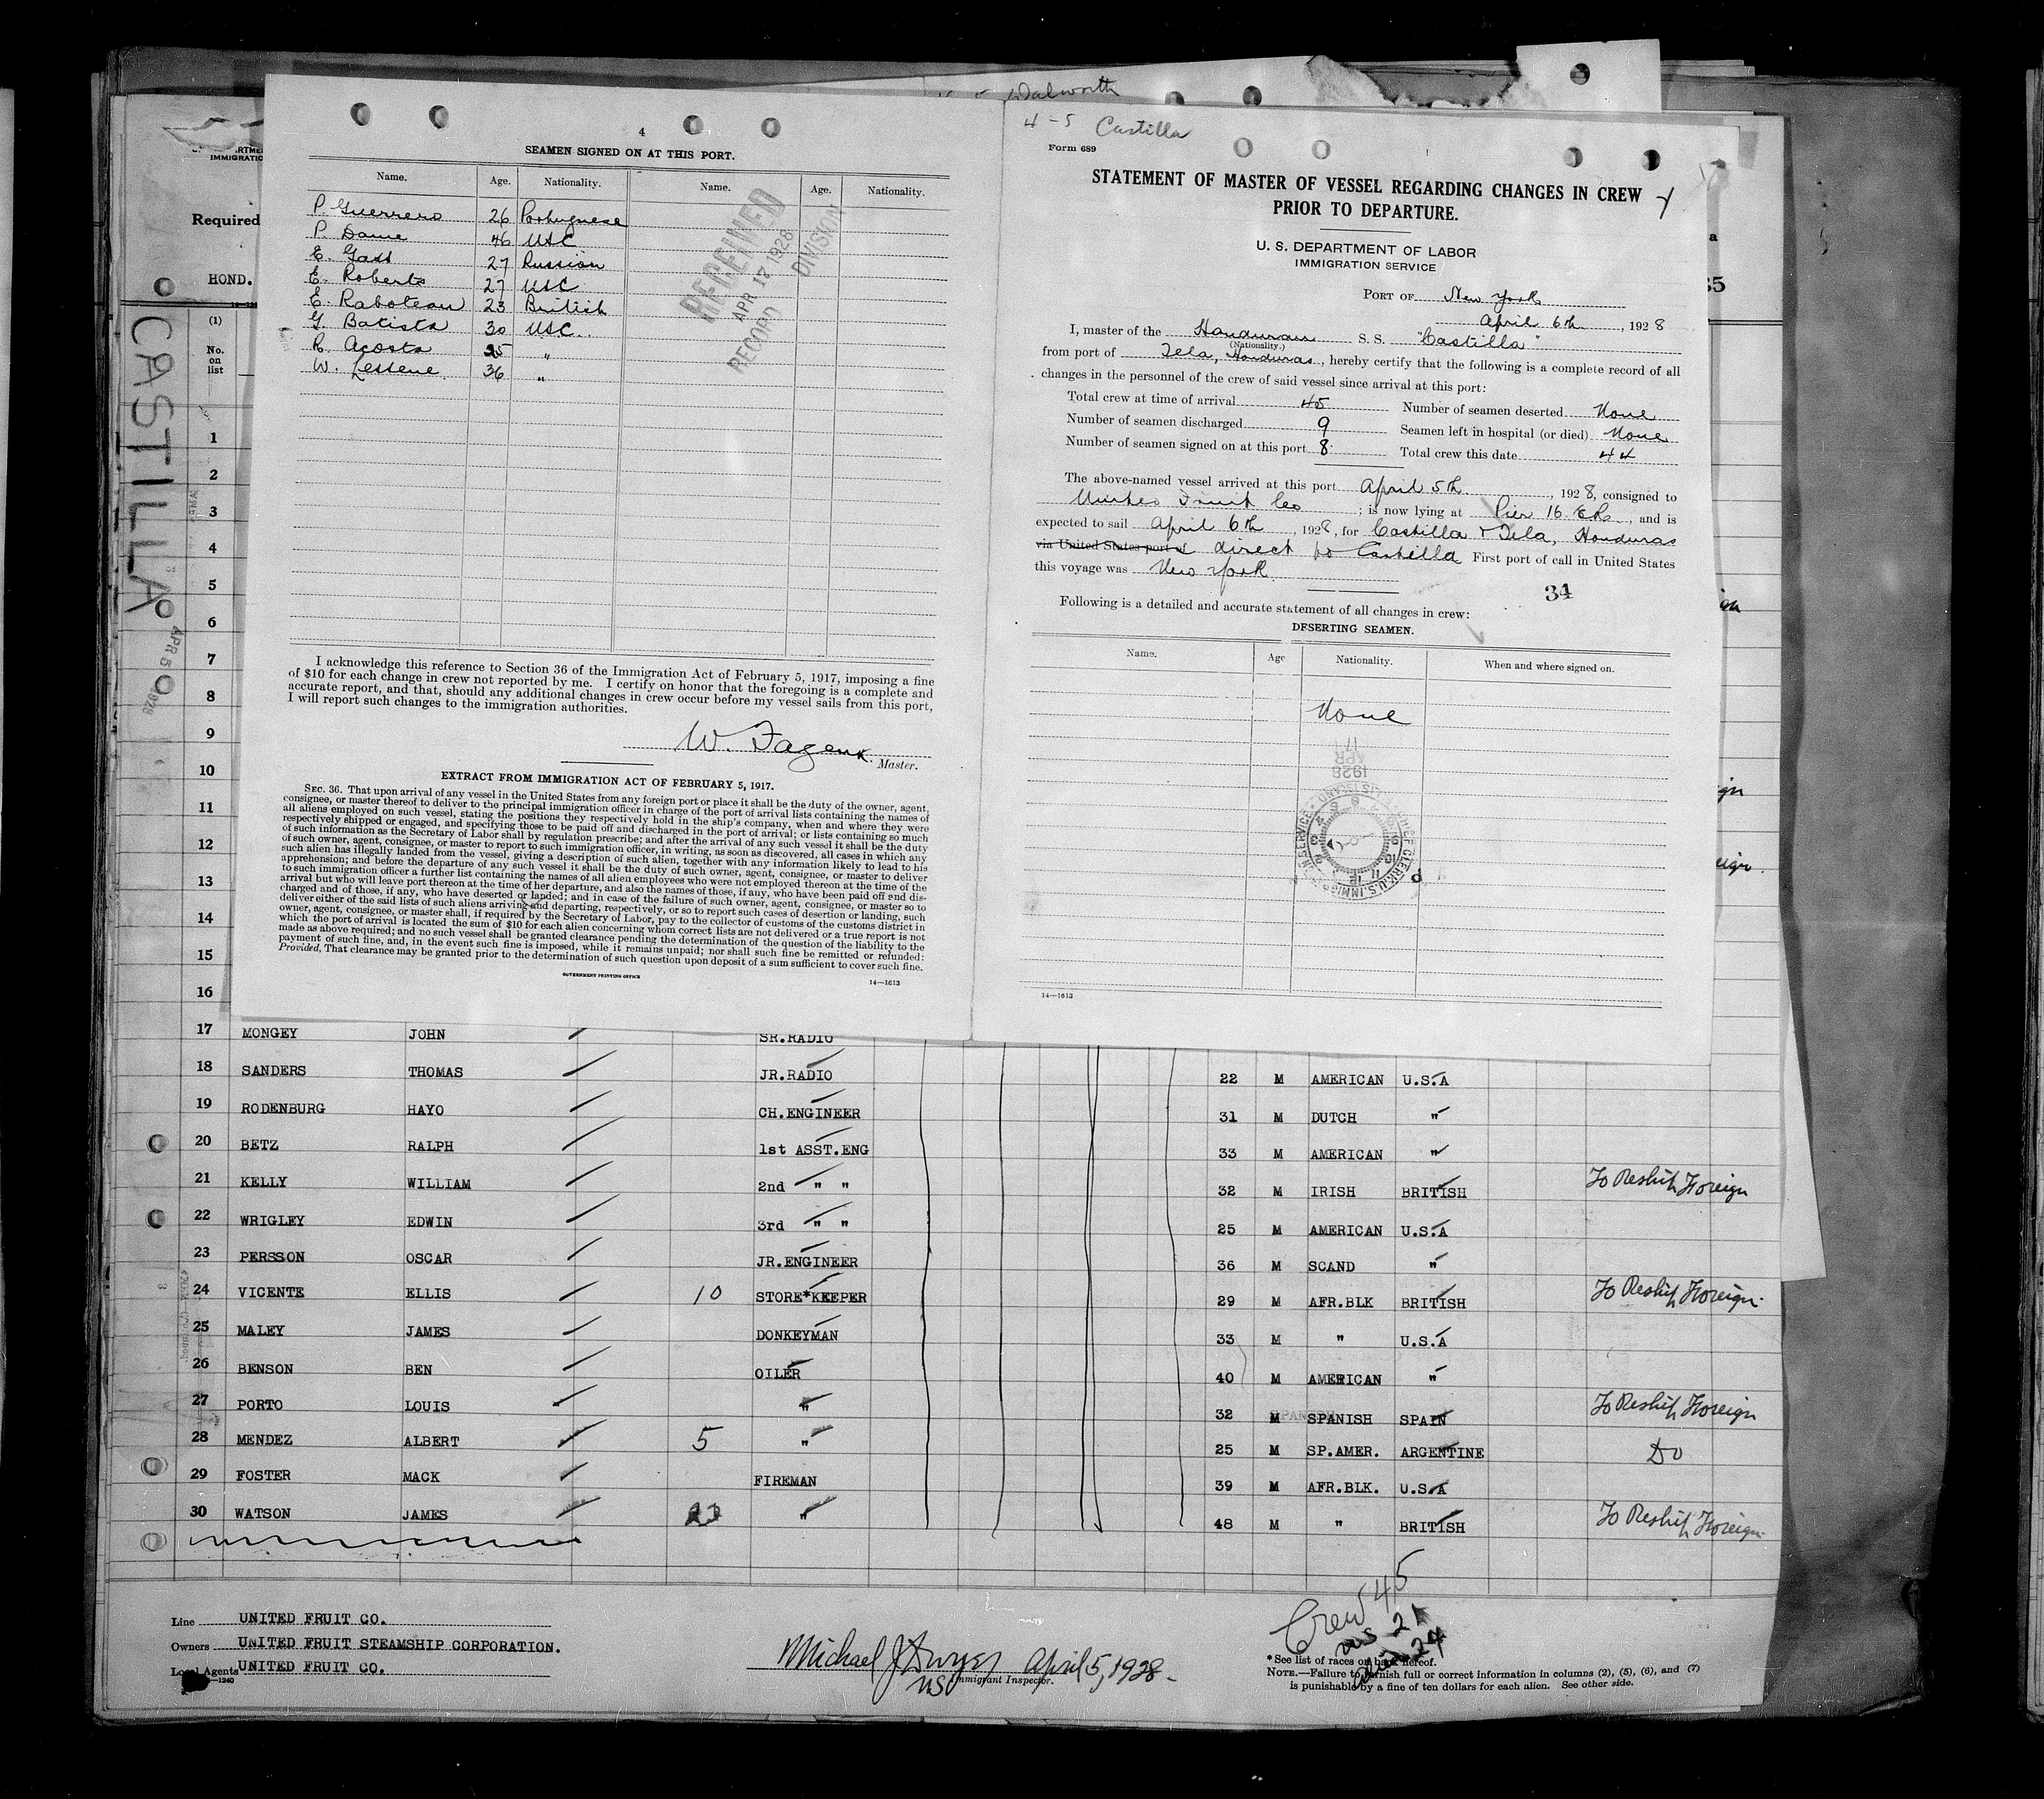 Walworth
4
SEAMEN SIGNED ON AT THIS PORT.
Name. Age. Nationality. Name. Age. Nationality.
P. Guerrero 26 Portuguese
P. Dame 46 USC
E. Gast 27 Russian
E. Roberts 27 USC
E. Raboteau 23 British
G. Batista 30 USC
R. Acosta 25 "
W. Lesesne 36 "
RECEIVED
APR 17 1928
RECORD DIVISION
I acknowledge this reference to Section 36 of the Immigration Act of February 5, 1917, imposing a fine
of $10 for each change in crew not reported by me. I certify on honor that the foregoing is a complete and
accurate report, and that, should any additional changes in crew occur before my vessel sails from this port,
I will report such changes to the immigration authorities.
W. Fagen
Master.
EXTRACT FROM IMMIGRATION ACT OF FEBRUARY 5, 1917.
SEC. 36. That upon arrival of any vessel in the United States from any foreign port or place it shall be the duty of the owner, agent,
consignee, or master thereof to deliver to the principal immigration officer in charge of the port of arrival lists containing the names of
all aliens employed on such vessel, stating the positions they respectively hold in the ship's company, when and where they were
respectively shipped or engaged, and specifying those to be paid off and discharged in the port of arrival; or lists containing so much
of such information as the Secretary of Labor shall by regulation prescribe; and after the arrival of any such vessel it shall be the duty
of such owner, agent, consignee, or master to report to such immigration officer, in writing, as soon as discovered, all cases in which any
such alien has illegally landed from the vessel, giving a description of such alien, together with any information likely to lead to his
apprehension; and before the departure of any such vessel it shall be the duty of such owner, agent, consignee, or master to deliver
to such immigration officer a further list containing the names of all alien employees who were not employed thereon at the time of the
arrival but who will leave port thereon at the time of her departure, and also the names of those, if any, who have been paid off and dis-
charged and of those, if any, who have deserted or landed; and in case of the failure of such owner, agent, consignee, or master so to
deliver either of the said lists of such aliens arriving and departing, respectively, or so to report such cases of desertion or landing, such
owner, agent, consignee, or master shall, if required by the Secretary of Labor, pay to the collector of customs of the customs district in
which the port of arrival is located the sum of $10 for each alien concerning whom correct lists are not delivered or a true report is not
made as above required; and no such vessel shall be granted clearance pending the determination of the question of the liability to the
payment of such fine, and, in the event such fine is imposed, while it remains unpaid; nor shall such fine be remitted or refunded:
Provided, That clearance may be granted prior to the determination of such question upon deposit of a sum sufficient to cover such fine.
GOVERNMENT PRINTING OFFICE
14—1613
4-5 Castilla
Form 689
STATEMENT OF MASTER OF VESSEL REGARDING CHANGES IN CREW
PRIOR TO DEPARTURE.
U. S. DEPARTMENT OF LABOR
IMMIGRATION SERVICE
PORT OF New York
April 6th, 1928
I, master of the Honduran S. S. "Castilla"
(Nationality.)
from port of Tela, Honduras, hereby certify that the following is a complete record of all
changes in the personnel of the crew of said vessel since arrival at this port:
Total crew at time of arrival 45 Number of seamen deserted None
Number of seamen discharged 9 Seamen left in hospital (or died) None
Number of seamen signed on at this port 8 Total crew this date 44
The above-named vessel arrived at this port April 5th, 1928, consigned to
United Fruit Co; is now lying at Pier 16 E.R., and is
expected to sail April 6th, 1928, for Castilla & Tela, Honduras
via United States port of direct to Castilla First port of call in United States
this voyage was New York
34
Following is a detailed and accurate statement of all changes in crew:
DESERTING SEAMEN.
Name. Age Nationality. When and where signed on.
None
17
APR
1928
14—1613
IMMIGRATIO
Required
HOND.
(1)
No.
on
list
CASTILLA
APR 5 1928
35
1
2
3
4
5
6
7
8
9
10
11
12
13
14
15
16
17 MONGEY JOHN SR.RADIO
18 SANDERS THOMAS JR.RADIO 22 M AMERICAN U.S.A
19 RODENBURG HAYO CH.ENGINEER 31 M DUTCH "
20 BETZ RALPH 1st ASST.ENG 33 M AMERICAN "
21 KELLY WILLIAM 2nd " " 32 M IRISH BRITISH To Reship Foreign
22 WRIGLEY EDWIN 3rd " " 25 M AMERICAN U.S.A
23 PERSSON OSCAR JR.ENGINEER 36 M SCAND "
24 VICENTE ELLIS 10 STORE*KEEPER 29 M AFR.BLK BRITISH To Reship Foreign
25 MALEY JAMES DONKEYMAN 33 M " U.S.A
26 BENSON BEN OILER 40 M AMERICAN "
27 PORTO LOUIS " 32 M SPANISH SPAIN To Reship Foreign
28 MENDEZ ALBERT 5 " 25 M SP.AMER. ARGENTINE Do
29 FOSTER MACK FIREMAN 39 M AFR.BLK. U.S.A
30 WATSON JAMES 23 " 48 M " BRITISH To Reship Foreign
Line UNITED FRUIT CO.
Owners UNITED FRUIT STEAMSHIP CORPORATION.
Local Agents UNITED FRUIT CO.
—1240
Michael J Dwyer April 5, 1928.
Immigrant Inspector.
Crew 45
21
24
*See list of races on back hereof.
NOTE.—Failure to furnish full or correct information in columns (2), (5), (6), and (7)
is punishable by a fine of ten dollars for each alien. See other side.